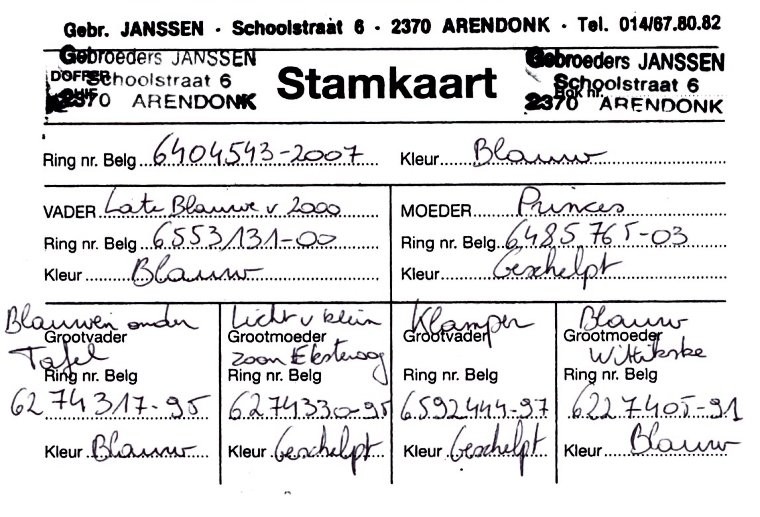 Gebr. JANSSEN · Schoolstraat 6 · 2370 ARENDONK · Tel. 014/67.80.82
Gebroeders JANSSEN
DOFFER Schoolstraat 6
2370 ARENDONK
Stamkaart
Gebroeders JANSSEN
Schoolstraat 6
Hok nr.
2370 ARENDONK
Ring nr. Belg 6404543-2007 Kleur Blauw
VADER Late Blauwe v 2000
Ring nr. Belg 6553131-00
Kleur Blauw
MOEDER Princes
Ring nr. Belg 6485765-03
Kleur Geschelpt
Blauwen onder
Grootvader
Tafel
Ring nr. Belg
6274317-95
Kleur Blauw
Licht v klein
Grootmoeder
zoon Eksteroog
Ring nr. Belg
6274330-95
Kleur Geschelpt
Klamper
Grootvader
Ring nr. Belg
6592444-97
Kleur Geschelpt
Blauw
Grootmoeder
Wittikske
Ring nr. Belg
6227405-91
Kleur Blauw